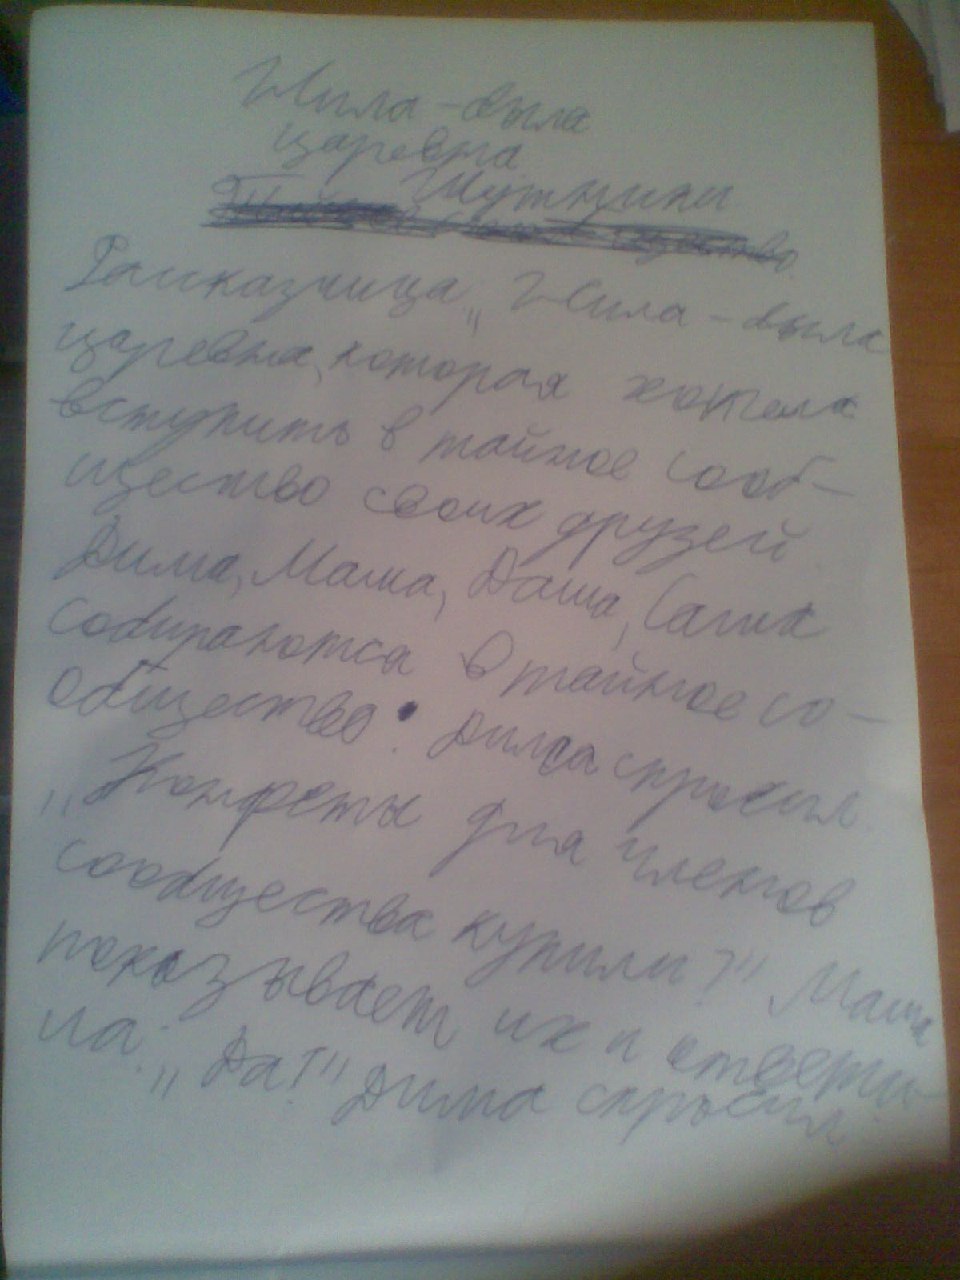 Жила-была
царевна
Шутники
Рассказчица „Жила-была
царевна, которая хотела
вступить в тайное сооб-
щество своих друзей.
Дима, Маша, Даша, Саша
собираются в тайное со-
общество. Дима спросил
„Конфеты для членов
сообщества купили?" Маша
показывает их и ответи-
ла: „Да!" Дима спросил: